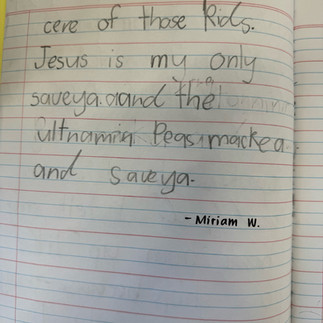 cere of those kids.
Jesus is my only
saveya.aand the
Ultnamin Peasimackea
and saveya.
- Miriam W.